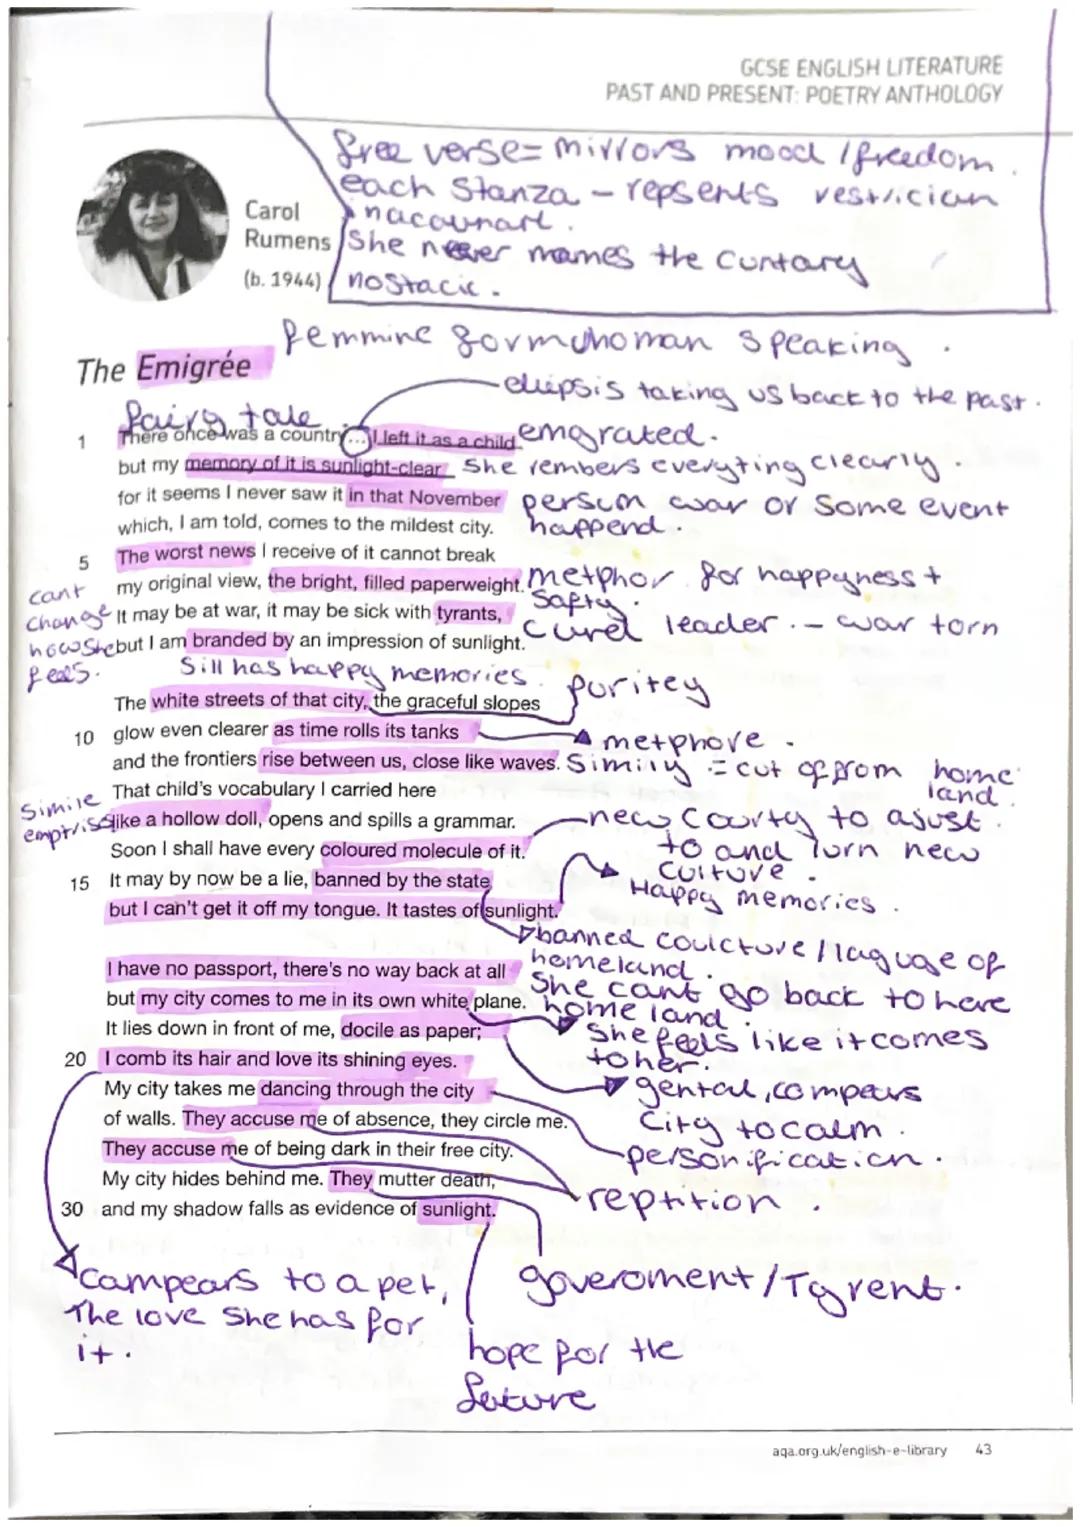 GCSE ENGLISH LITERATURE
PAST AND PRESENT: POETRY ANTHOLOGY
free verse = mirrors mood / freedom.
each Stanza - repsents
She never mames the Cuntary
nostacic.
Carol
Rumens
(b. 1944)
The Emigrée
speaking.
ellipsis taking us back to the past.
fairy tale
1 There once was a country... I left it as a child
emgrated.
but my memory of it is sunlight-clear
She rembers everyting clearly.
for it seems I never saw it in that November
war or some event
which, I am told, comes to the mildest city.
happend.
5 The worst news I receive of it cannot break
my original view, the bright, filled paperweight.
metphor for happyness +
safty.
It may be at war, it may be sick with tyrants,
curel leader. - war torn
but I am branded by an impression of sunlight.
cant
change
how She
feels.
Sill has happy memories.
puritey
The white streets of that city, the graceful slopes
10 glow even clearer as time rolls its tanks
metphore.
and the frontiers rise between us, close like waves.
Similiy = cut of from home
land.
That child's vocabulary I carried here
Simile
like a hollow doll, opens and spills a grammar.
new to ajust
Soon I shall have every coloured molecule of it.
to and lurn new
culture.
15 It may by now be a lie, banned by the state
Happy memories.
but I can't get it off my tongue. It tastes of sunlight.
banned coulcture / laguage of
homeland.
I have no passport, there's no way back at all
She cant go back to here
home land.
but my city comes to me in its own white plane.
She feels like it comes
to her.
It lies down in front of me, docile as paper;
gental, compears
City to calm.
20 I comb its hair and love its shining eyes.
My city takes me dancing through the city
of walls. They accuse me of absence, they circle me.
personification.
They accuse me of being dark in their free city.
My city hides behind me. They mutter death,
reptition.
30 and my shadow falls as evidence of sunlight.
campears to a pet,
The love She has for
it.
goveroment / Tyrent.
hope for the
future
aqa.org.uk/english-e-library 43